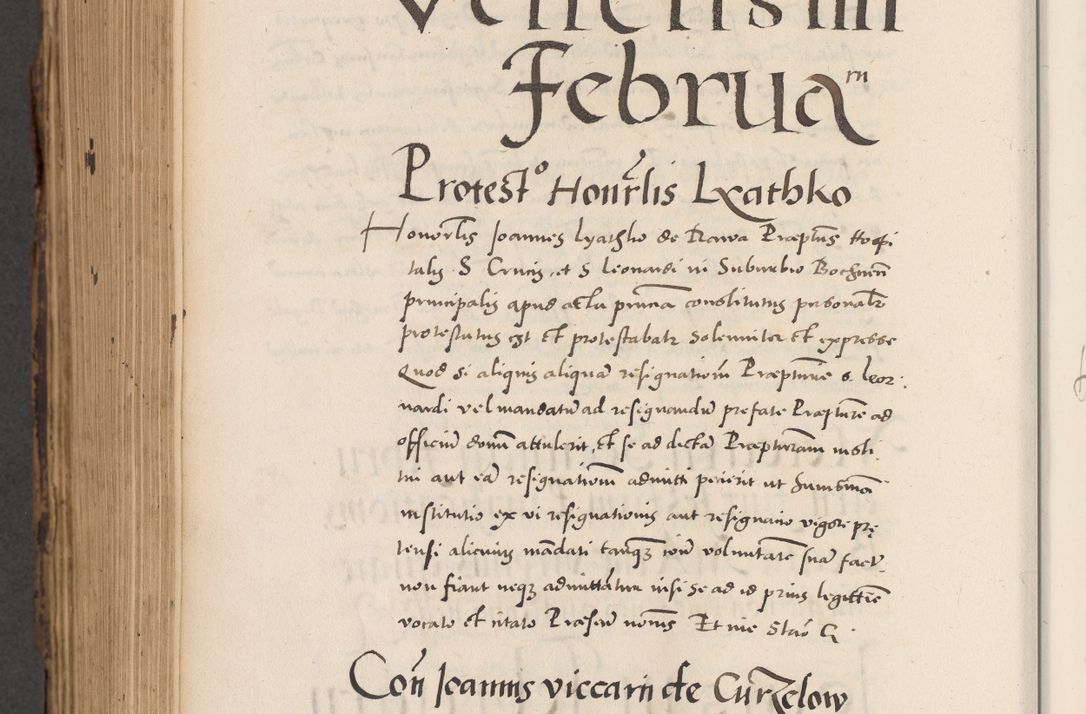 Februa rn
Protest o Honrlis Lyathko
Honorlis Joannes Lyathko de Rawa Præptus Hospi
talis S Crucis et S Leonardi in Suburbio Bochnen
principalis apud acta prima constitutus personalr
protestatus est et protestabatr Solemniter et expresse
Quod si aliquis aliquā resignationm Præpturæ S. Leor
nardi vel mandatū ad resignandū prefate Præpture ad
officiū domi attulerit, et se ad dictā Præpturam insti
tui aut eā resignationem admitti petierit ut huiusmōi
institutio ex vi resignationis aut resignatio vigore prę
tensi alicuius mādati tanq cōtr voluntatē suā fact
non fiant neq admittātur nisi se ad id prius legittīe
vocato et citato Præsen noms Et me Stan G
Con Joannis viccarii de Curzelow